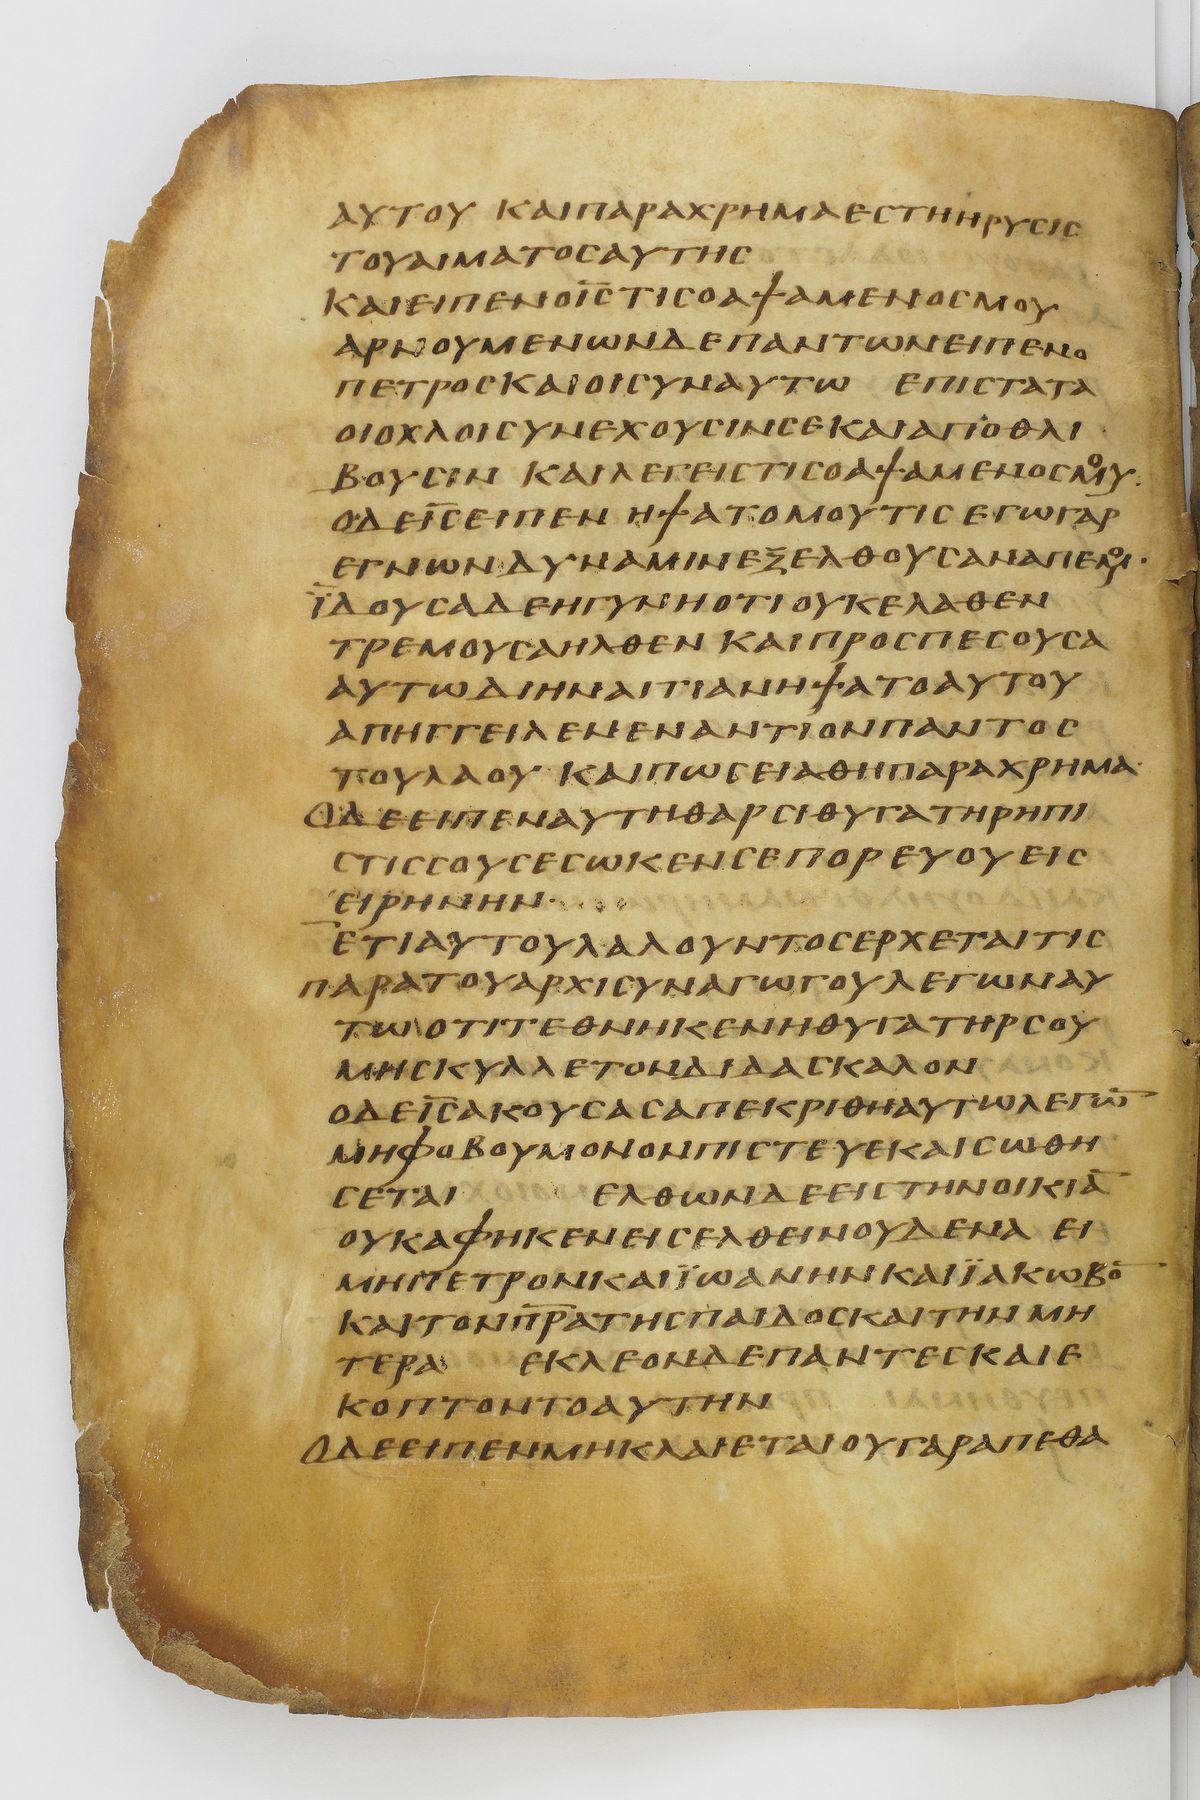 ΑΥΤΟΥ ΚΑΙΠΑΡΑΧΡΗΜΑΕΣΤΗΗΡΥΣΙΣ
ΤΟΥΑΙΜΑΤΟΣΑΥΤΗΣ
ΚΑΙΕΙΠΕΝΟΙ̅Σ̅ΤΙΣΟΑΨΑΜΕΝΟΣΜΟΥ
ΑΡΝΟΥΜΕΝΩΝΔΕΠΑΝΤΩΝΕΙΠΕΝΟ
ΠΕΤΡΟΣΚΑΙΟΙΣΥΝΑΥΤΩ ΕΠΙΣΤΑΤΑ
ΟΙΟΧΛΟΙΣΥΝΕΧΟΥΣΙΝΣΕΚΑΙΑΠΟΘΛΙ
ΒΟΥΣΙΝ ΚΑΙΛΕΓΕΙΣΤΙΣΟΑΨΑΜΕΝΟΣΜΟΥ·
ΟΔΕΙ̅Σ̅ΕΙΠΕΝ ΗΨΑΤΟΜΟΥΤΙΣΕΓΩΓΑΡ
ΕΓΝΩΝΔΥΝΑΜΙΝΕΞΕΛΘΟΥΣΑΝΑΠΕΜΟΥ·
ΪΔΟΥΣΑΔΕΗΓΥΝΗΟΤΙΟΥΚΕΛΑΘΕΝ
ΤΡΕΜΟΥΣΑΗΛΘΕΝ ΚΑΙΠΡΟΣΠΕΣΟΥΣΑ
ΑΥΤΩΔΙΗΝΑΙΤΙΑΝΗΨΑΤΟΑΥΤΟΥ
ΑΠΗΓΓΕΙΛΕΝΕΝΑΝΤΙΟΝΠΑΝΤΟΣ
ΤΟΥΛΑΟΥ ΚΑΙΠΩΣΕΙΑΘΗΠΑΡΑΧΡΗΜΑ·
ΟΔΕΕΙΠΕΝΑΥΤΗΘΑΡΣΙΘΥΓΑΤΗΡΗΠΙ
ΣΤΙΣΣΟΥΣΕΣΩΚΕΝΣΕΠΟΡΕΥΟΥΕΙΣ
ΕΙΡΗΝΗΝ·
ΕΤΙΑΥΤΟΥΛΑΛΟΥΝΤΟΣΕΡΧΕΤΑΙΤΙΣ
ΠΑΡΑΤΟΥΑΡΧΙΣΥΝΑΓΩΓΟΥΛΕΓΩΝΑΥ
ΤΩΟΤΙΤΕΘΝΗΚΕΝΗΘΥΓΑΤΗΡΣΟΥ
ΜΗΣΚΥΛΛΕΤΟΝΔΙΔΑΣΚΑΛΟΝ
ΟΔΕΙ̅Σ̅ΑΚΟΥΣΑΣΑΠΕΚΡΙΘΗΑΥΤΩΛΕΓΩ̅
ΜΗΦΟΒΟΥΜΟΝΟΝΠΙΣΤΕΥΕΚΑΙΣΩΘΗ
ΣΕΤΑΙ ΕΛΘΩΝΔΕΕΙΣΤΗΝΟΙΚΙΑ̅
ΟΥΚΑΦΗΚΕΝΕΙΣΕΛΘΕΙΝΟΥΔΕΝΑ ΕΙ
ΜΗΠΕΤΡΟΝΚΑΙΪΩΑΝΗΝΚΑΙΪΑΚΩΒΟ̅
ΚΑΙΤΟΝΠ̅Ρ̅ΑΤΗΣΠΑΙΔΟΣΚΑΙΤΗΝΜΗ
ΤΕΡΑ ΕΚΛΕΟΝΔΕΠΑΝΤΕΣΚΑΙΕ
ΚΟΠΤΟΝΤΟΑΥΤΗΝ
ΟΔΕΕΙΠΕΝΜΗΚΛΑΙΕΤΑΙΟΥΓΑΡΑΠΕΘΑ